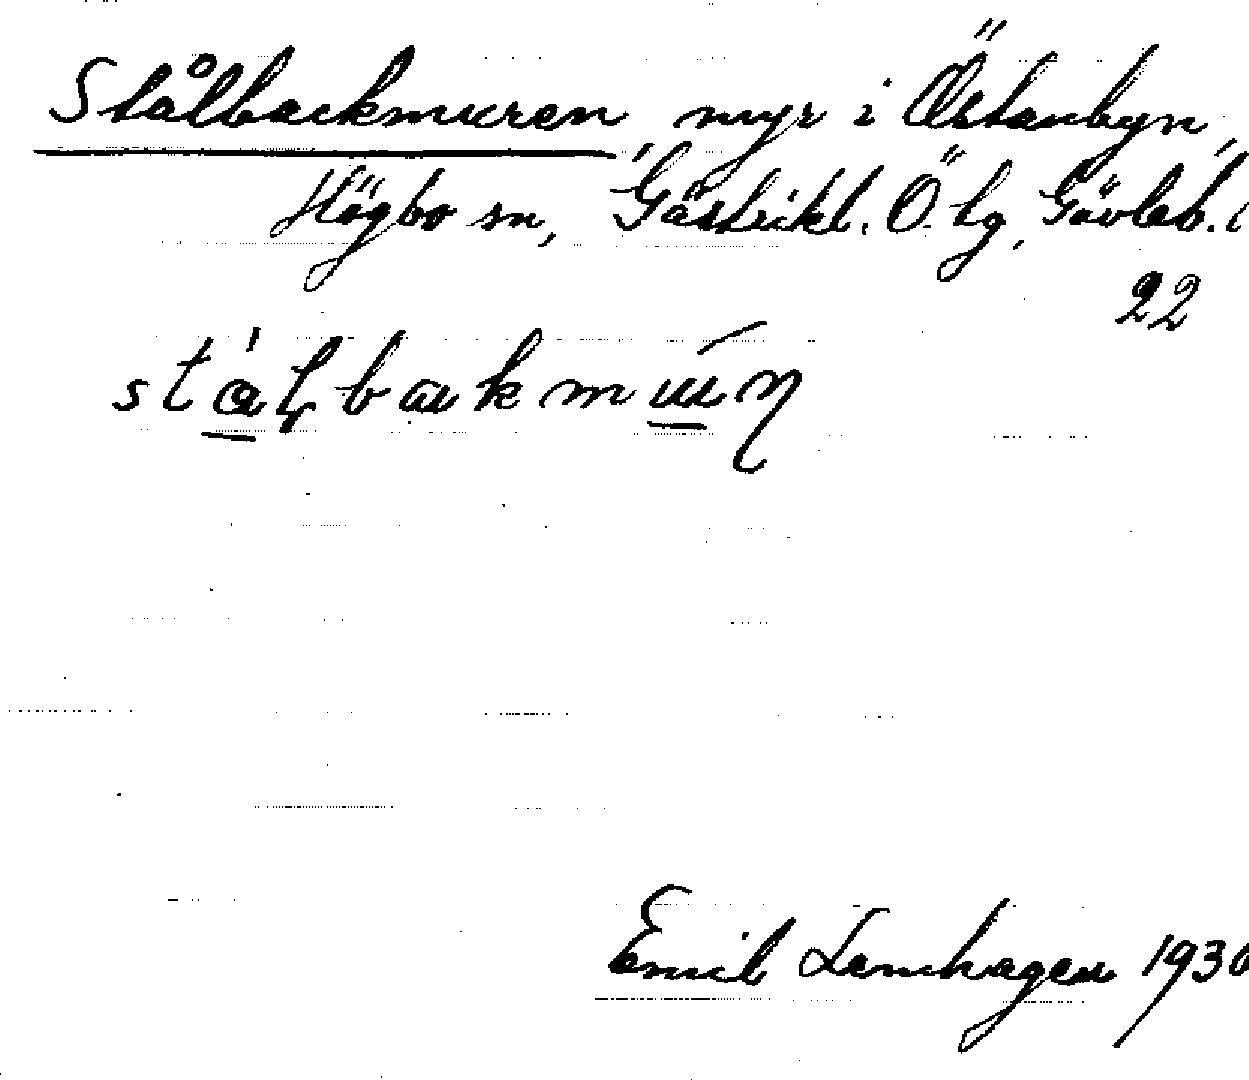 Stålbackmuren myr i Östanbyn,
Högbo sn, Gästrikl. Ö. tg, Gävleb. l
22
Emil Lenhagen 1930